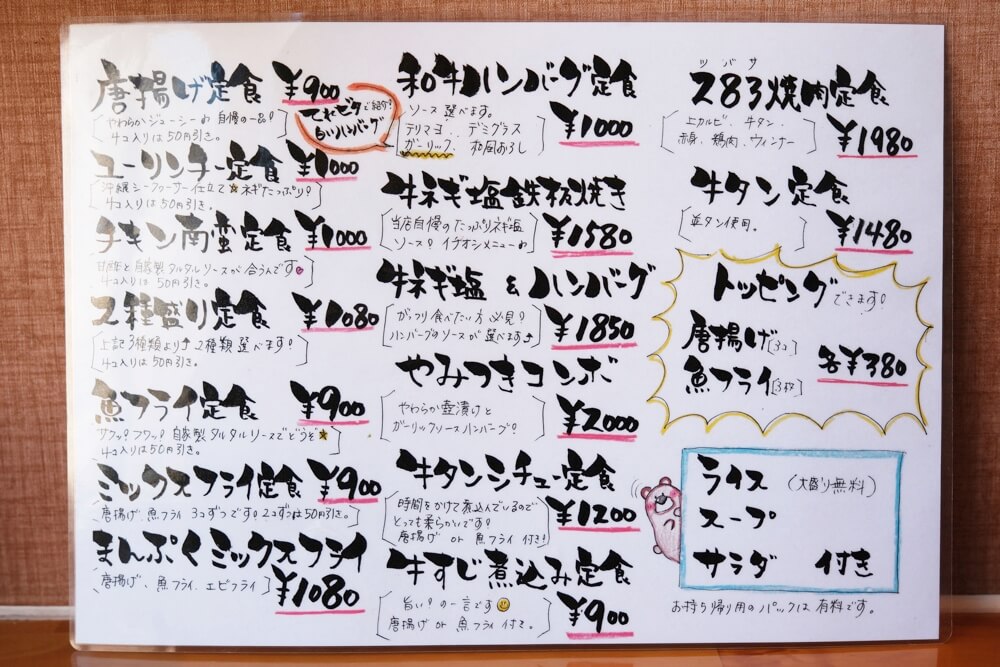 唐揚げ定食 ¥900
やわらかジューシー♪ 自慢の一品!
4コ入りは50円引き。
てれビタで紹介!
白いハンバーグ
ユーリンチー定食 ¥1000
沖縄シークァーサー仕立て★ネギたっぷり!
4コ入りは50円引き。
チキン南蛮定食 ¥1000
甘酢と自家製タルタルソースが合うんです
4コ入りは50円引き。
2種盛り定食 ¥1080
上記3種類より↑2種類選べます!
4コ入りは50円引き。
魚フライ定食 ¥900
サクッ!フワッ!自家製タルタルソースでどうぞ★
4コ入りは50円引き。
ミックスフライ定食 ¥900
唐揚げ、魚フライ 3コずつです!2コずつは50円引き。
まんぷくミックスフライ
唐揚げ、魚フライ、エビフライ
¥1080
和牛ハンバーグ定食
ソース選べます。
テリマヨ、デミグラス
ガーリック、和風おろし
¥1000
牛ネギ塩鉄板焼き
当店自慢のたっぷりネギ塩
ソース!イチオシメニュー♪
¥1580
牛ネギ塩&ハンバーグ
がっつり食べたい方必見!
ハンバーグのソースが選べます↑
¥1850
やみつきコンボ
やわらか壺漬けと
ガーリックソースハンバーグ!
¥2000
牛タンシチュー定食
時間をかけて煮込んでいるので
とっても柔らかいです!
唐揚げ or 魚フライ付き!
¥1200
牛すじ煮込み定食
旨い!の一言です
唐揚げ or 魚フライ付き。
¥900
ツバサ
283焼肉定食
上カルビ、牛タン、
赤身、鶏肉、ウィンナー
¥1980
牛タン定食
並タン使用。
¥1480
トッピングできます!
唐揚げ[3コ]
魚フライ[3枚]
各¥380
ライス (大盛り無料)
スープ
サラダ 付き
お持ち帰り用のパックは有料です。